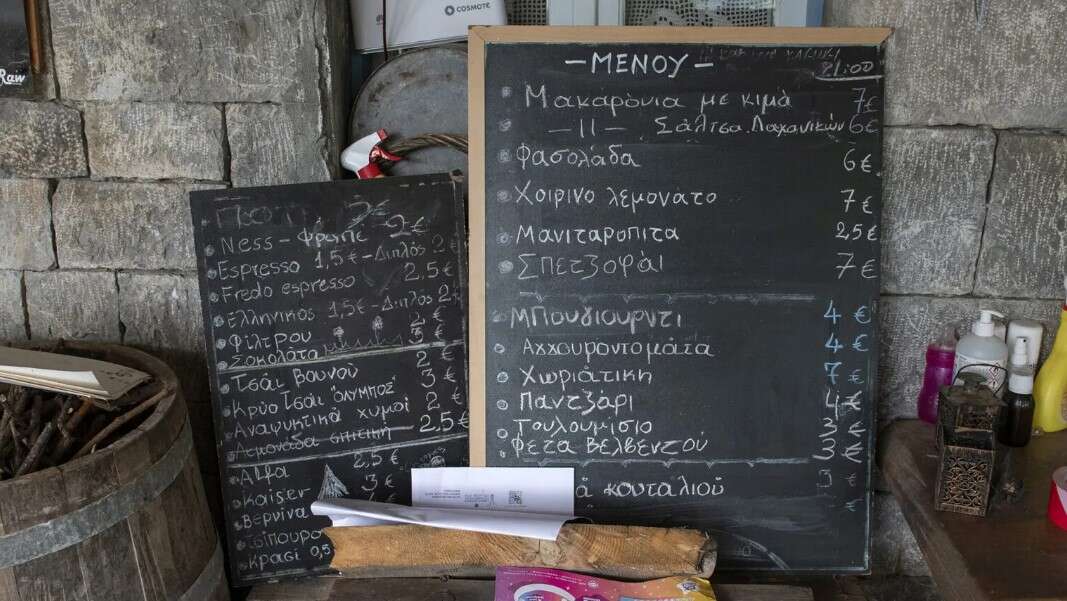 COSMOTE
Raw
—ΜΕΝΟΥ—
21:00
Μακαρόνια με κιμά 7€
—11— Σάλτσα Λαχανικών 6€
Φασολάδα 6€
Χοιρινο λεμονάτο 7€
Μανιταροπιτα 2,5€
Σπετζοφάι 7€
Μπουγιουρντι 4€
Αγγουροντομάτα 4€
Χωριάτικη 7€
Παντζάρι 4€
Τουλουμίσιο 3€
Φέτα Βελβεντού 3€
κουταλιού 3€
2€
Ness — φραπέ 2€
Espresso 1,5€ – Διπλός 2€
Fredo espresso 2.5€
Ελληνικος 1,5€ – Διπλος 2€
Φίλτρου 2€
Σοκολάτα 3€
Τσάι Βουνού 2€
Κρύο Τσάι "ΟΛΥΜΠΟΣ" 3€
Αναψυκτικά χυμοί 2€
Λεμονάδα σπιτική 2,5€
Alfa 2,5€
Kaiser
Βεργίνα
Τσίπουρο
Κρασί 0,5